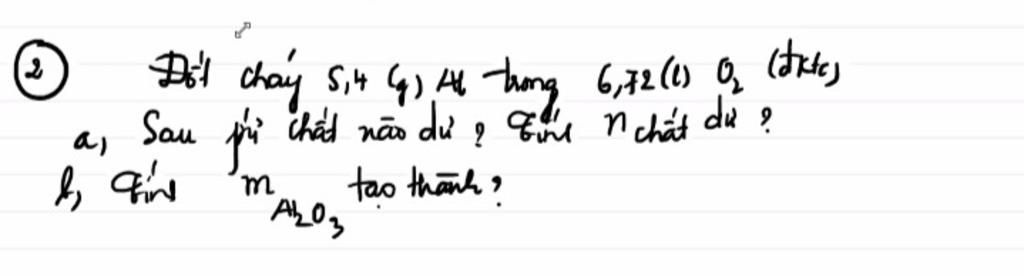 ② Đốt cháy 5,4 (g) Al trong 6,72 (l) O₂ (đktc)
a, Sau pứ chất nào dư? Tính n chất dư?
b, Tính m Al₂O₃ tạo thành?